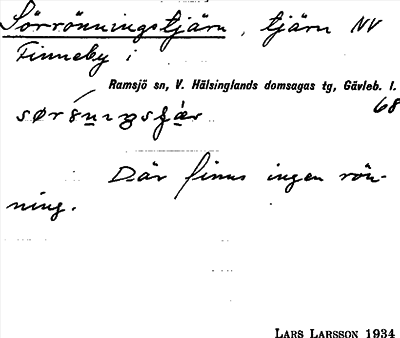 Sörrönningstjärn, tjärn NV
Finneby i
Ramsjö sn, V. Hälsinglands domsagas tg, Gävleb. l.
68
Där finns ingen rön-
ning.
LARS LARSSON 1934